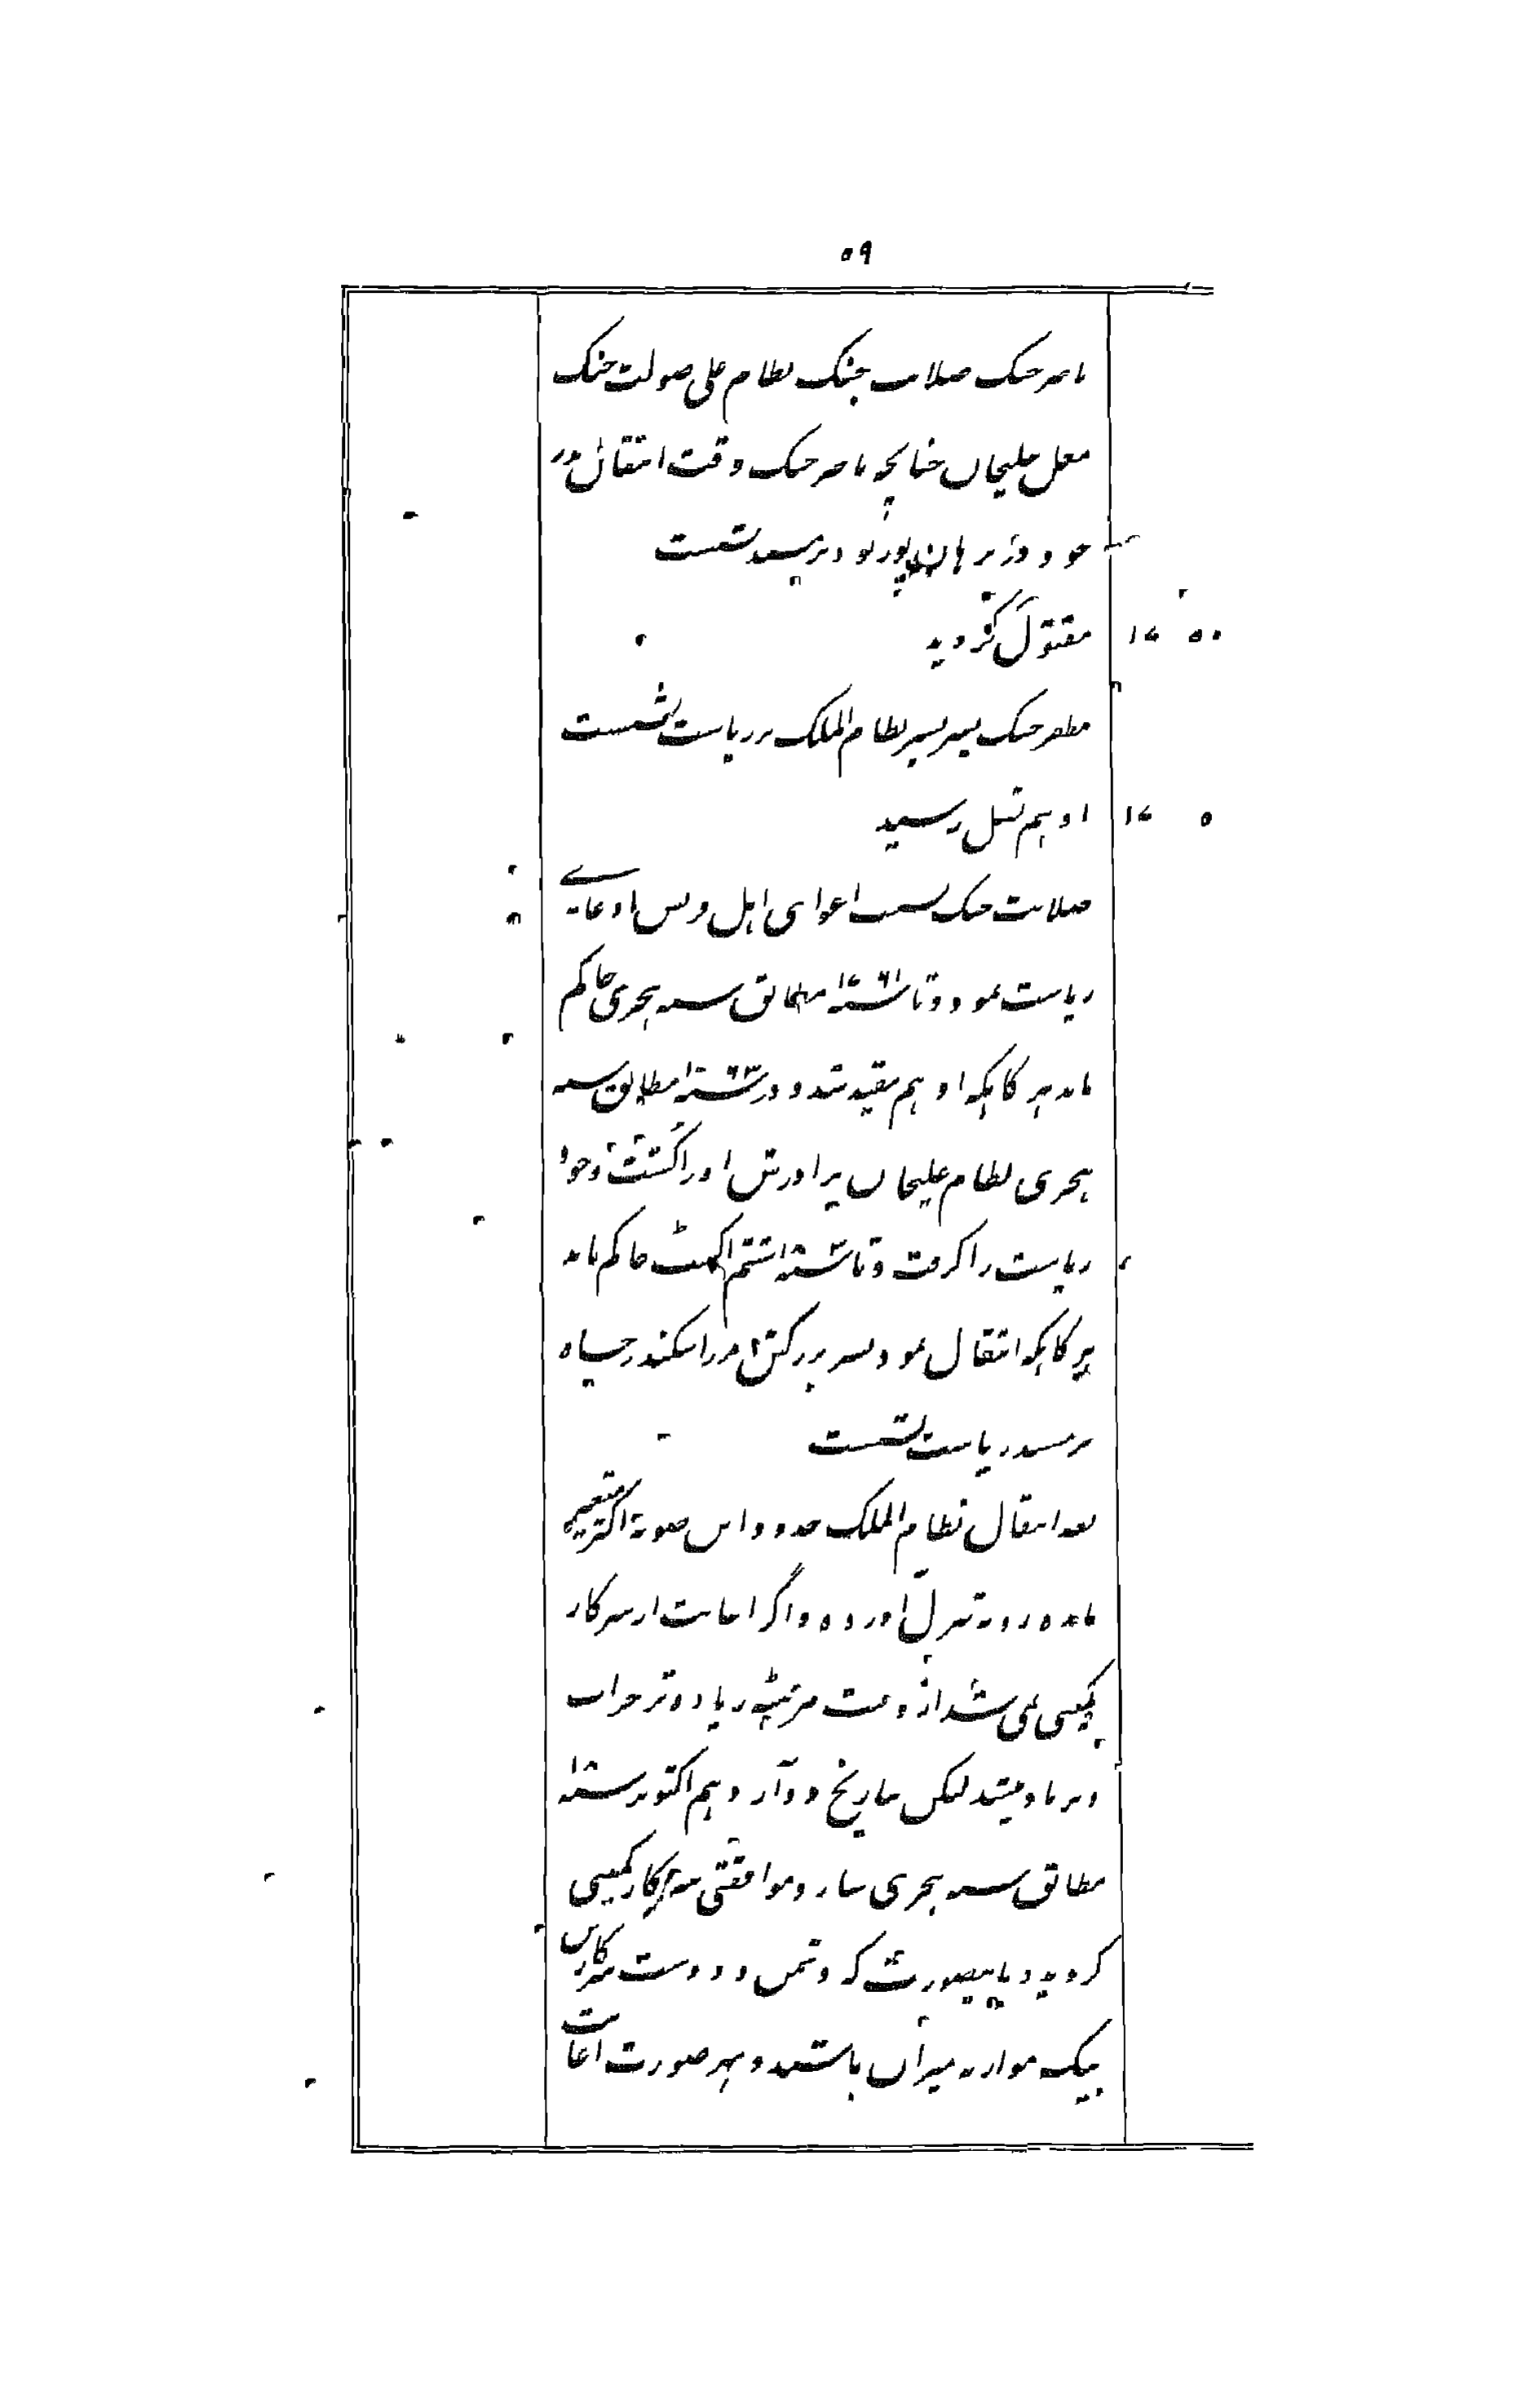 ۵۹
ناصر جنگ صلابت جنگ نظام علی صولت جنگ
مغل علیخان چنانچه ناصر جنگ وقت انتقال پدر
خود در برهان پور بود بر مسند نشست
مقتول گردید ۱۷۵۰
مظفر جنگ پسر پسر نظام الملک بر ریاست نشست
او هم قتل رسید ۱۷۵
صلابت جنگ بسبب اغوای اهل فرانس ادعای
ریاست نمود و تا ۱۷۶۱ مطابق سنه هجری حاکم
ماند هر گاهیکه او هم مقید شد و در ۱۷۶۳ مطابق سنه
هجری نظام علیخان برادرش او را کشت و خود
ریاست را گرفت و تا هشتم اگست حاکم ماند
هر گاهیکه انتقال نمود پسر بزرگش مرزا سکندر جاه
بر مسند ریاست نشست
بعد انتقال نظام الملک حدود این صوبه اکثر متغیر
مانده رو به تنزل آورده و اگر اعانت از سرکار
کمپنی نمی شد از دست مرهٹه زیاده تر خراب
و برباد میشد لیکن بتاریخ دوازدهم اکتوبر
مطابق سنه هجری سازد موافقتی سرکار کمپنی
گردید و باینصورت که دشمن و دوست سرکارین
بیک موازنه میزان باشند و بهر صورت اعانت